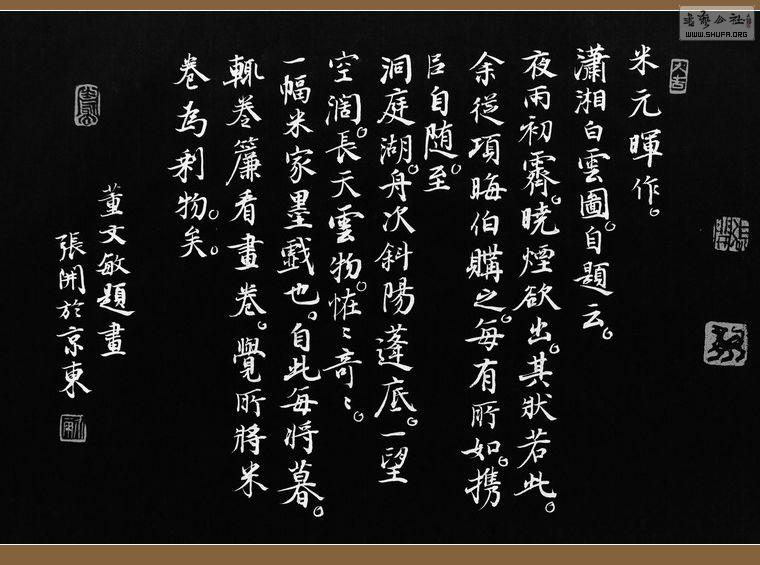 米元暉作。
瀟湘白雲圖。自題云。
夜雨初霽。曉煙欲出。其狀若此。
余從項晦伯購之。每有所如。携
㠯自随。至
洞庭湖。舟次斜陽蓬底。一望
空濶。長天雲物。恠〻奇〻。
一幅米家墨戲也。自此每将暮。
輒卷簾看畫卷。覺所將米
卷為剩物。矣。
董文敏題畫
張開於京東
書藝公社
WWW.SHUFA.ORG